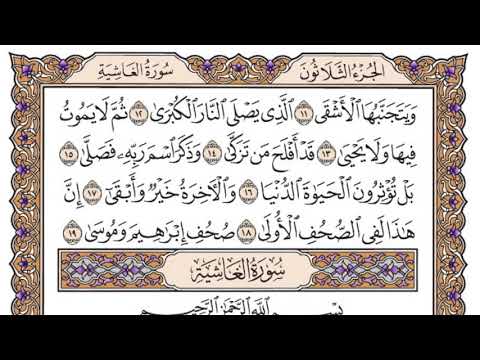 الجُزْءُ الثَّلَاثُونَ
سُورَةُ الغَاشِيَةِ
وَيَتَجَنَّبُهَا ٱلْأَشْقَى ١١ ٱلَّذِى يَصْلَى ٱلنَّارَ ٱلْكُبْرَىٰ ١٢ ثُمَّ لَا يَمُوتُ
فِيهَا وَلَا يَحْيَىٰ ١٣ قَدْ أَفْلَحَ مَن تَزَكَّىٰ ١٤ وَذَكَرَ ٱسْمَ رَبِّهِۦ فَصَلَّىٰ ١٥
بَلْ تُؤْثِرُونَ ٱلْحَيَوٰةَ ٱلدُّنْيَا ١٦ وَٱلْأٓخِرَةُ خَيْرٌ وَأَبْقَىٰٓ ١٧ إِنَّ
هَٰذَا لَفِى ٱلصُّحُفِ ٱلْأُولَىٰ ١٨ صُحُفِ إِبْرَٰهِيمَ وَمُوسَىٰ ١٩
سُورَةُ الغَاشِيَةِ
بِسْمِ ٱللَّهِ ٱلرَّحْمَٰنِ ٱلرَّحِيمِ